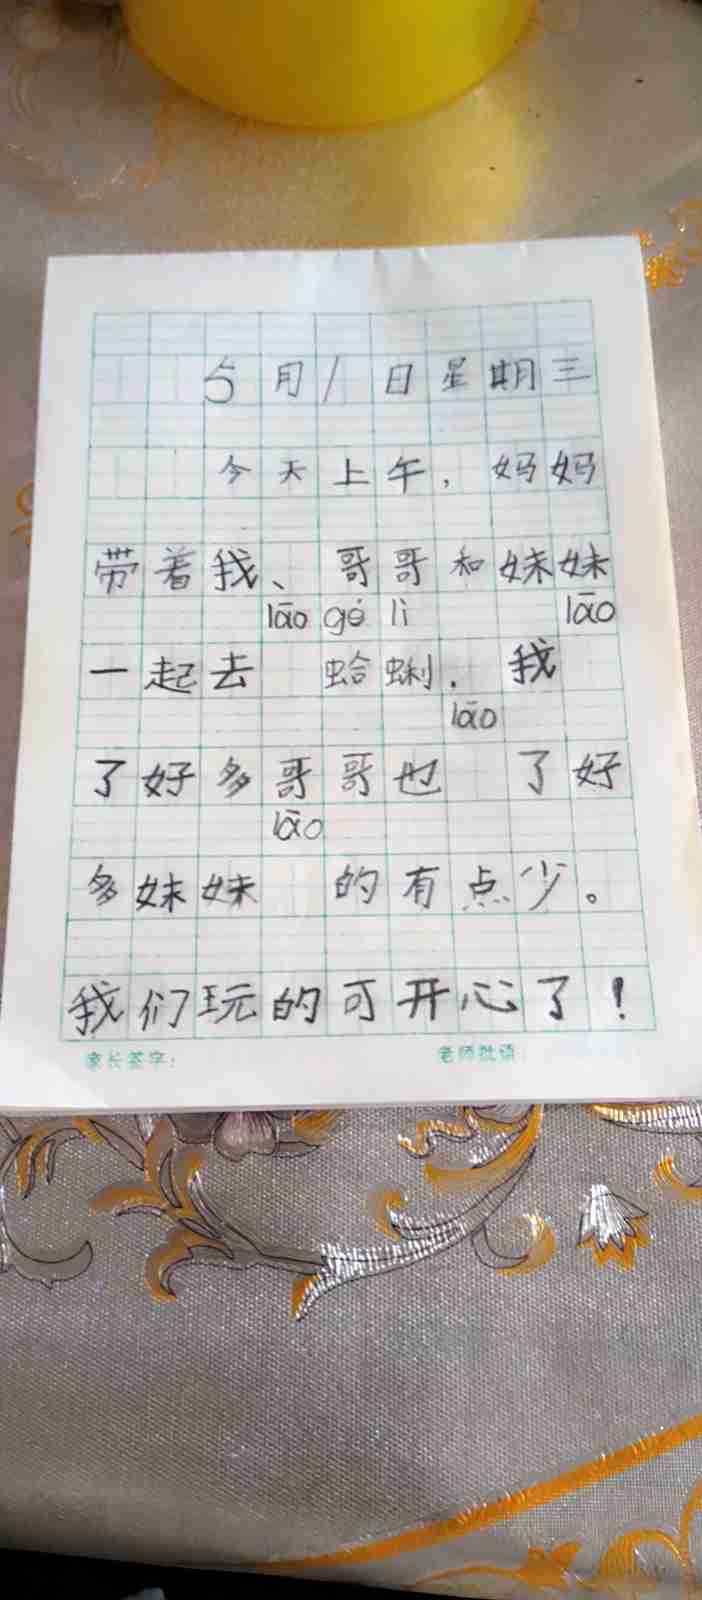 5月1日星期三
今天上午，妈妈
带着我、哥哥和妹妹
lāo gé lì lāo
一起去 蛤蜊．我
lāo
了好多哥哥也 了好
lāo
多妹妹 的有点少。
我们玩的可开心了！
家长签字： 老师批语：